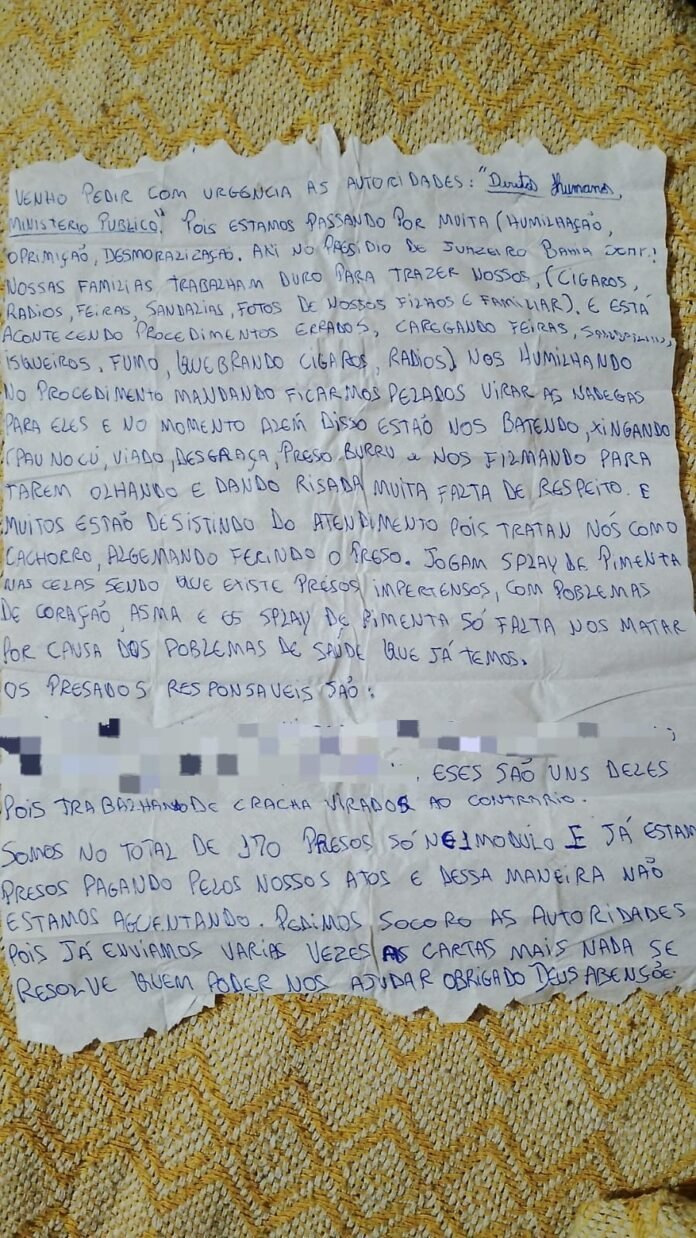 VENHO PEDIR COM URGENCIA AS AUTORIDADES: "Direitos Humanos,
MINISTERIO PUBLICO". POIS ESTAMOS PASSANDO POR MUITA (HUMILHAÇÃO,
OPRIMIÇÃO, DESMORALIZAÇÃO. NO PRESIDIO DE JUAZEIRO BAHIA
NOSSAS FAMILIAS TRABALHAM DURO PARA TRAZER NOSSOS, (CIGAROS,
RADIOS, FEIRAS, SANDALIAS, FOTOS DE NOSSOS FILHOS E FAMILIAR). E ESTÁ
ACONTECENDO PROCEDIMENTOS ERRADOS, CAREGANDO FEIRAS,
ISQUEIROS, FUMO, (QUEBRANDO CIGAROS, RADIOS) NOS HUMILHANDO
NO PROCEDIMENTO MANDANDO FICARMOS PELADOS VIRAR AS NADEGAS
PARA ELES E NO MOMENTO ALEM DISSO ESTAÕ NOS BATENDO, XINGANDO
(PAU NO CÚ, VIADO, DESGRAÇA, PRESO BURRU e NOS FILMANDO PARA
TAREM OLHANDO E DANDO RISADA MUITA FALTA DE RESPEITO. E
MUITOS ESTÃO DESISTINDO DO ATENDIMENTO POIS TRATAN NÓS COMO
CACHORRO, ALGEMANDO FERINDO O PRESO. JOGAM SPLAY DE PIMENTA
NAS CELAS SENDO QUE EXISTE PRESOS IMPERTENSOS, COM POBLEMAS
DE CORAÇÃO, ASMA E OS SPLAY DE PIMENTA SÓ FALTA NOS MATAR
POR CAUSA DOS POBLEMAS DE SAUDE QUE JÁ TEMOS.
OS PRESADOS RESPONSAVEIS SÃO:
;
. ESES SÃO UNS DELES
POIS TRABALHAM DE CRACHA VIRADOS AO CONTRARIO.
SOMOS NO TOTAL DE 170 PRESOS SÓ NE1 MODULO E JÁ ESTAM
PRESOS PAGANDO PELOS NOSSOS ATOS E DESSA MANEIRA NÃO
ESTAMOS AGUENTANDO. PEDIMOS SOCORO AS AUTORIDADES
POIS JÁ ENVIAMOS VARIAS VEZES AS CARTAS MAIS NADA SE
RESOLVE QUEM PODER NOS AJUDAR OBRIGADO DEUS ABENSÕE.